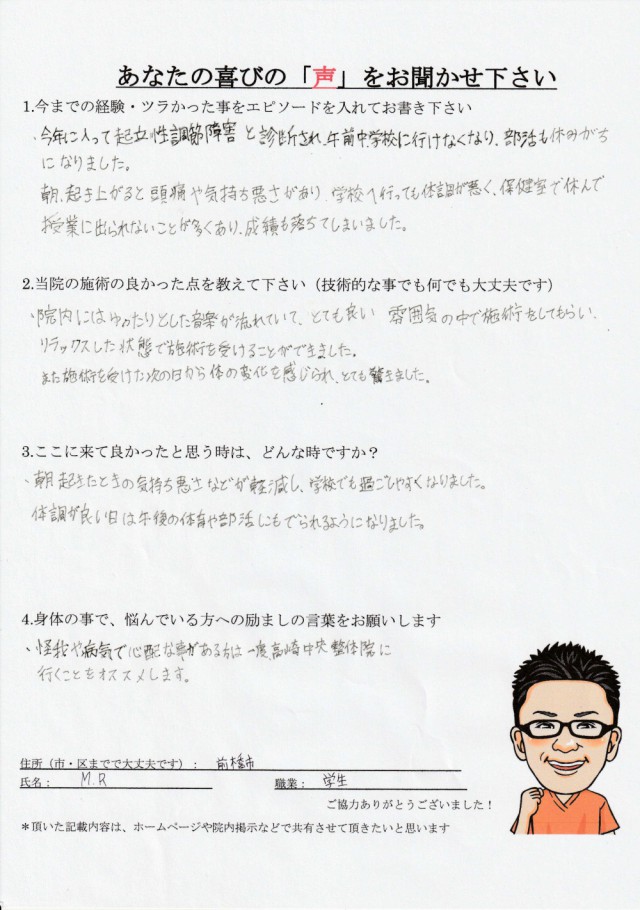 あなたの喜びの「声」をお聞かせ下さい
1.今までの経験・ツラかった事をエピソードを入れてお書き下さい
、今年に入って起立性調節障害と診断され、午前中学校に行けなくなり、部活も休みがち
になりました。
朝、起き上がると頭痛や気持ち悪さがあり、学校へ行っても体調が悪く、保健室で休んで
授業に出られないことが多くあり、成績も落ちてしまいました。
2.当院の施術の良かった点を教えて下さい(技術的な事でも何でも大丈夫です)
、院内にはゆったりとした音楽が流れていて、とても良い 雰囲気の中で施術をしてもらい、
リラックスした状態で施術を受けることができました。
また施術を受けた次の日から体の変化を感じられ、とても驚きました。
3.ここに来て良かったと思う時は、どんな時ですか?
、朝起きたときの気持ち悪さなどが軽減し、学校でも過ごしやすくなりました。
体調が良い日は午後の体育や部活にもでられるようになりました。
4.身体の事で、悩んでいる方への励ましの言葉をお願いします
、怪我や病気で心配な事がある方は一度高崎中央整体院に
行くことをオススメします。
住所(市・区までで大丈夫です): 前橋市
氏名: M.R 職業: 学生
ご協力ありがとうございました!
*頂いた記載内容は、ホームページや院内掲示などで共有させて頂きたいと思います